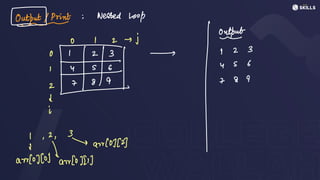 SKILLS
Output / Print : Nested Loop
0 1 2 → j
0 1 2 3
1 4 5 6
2 7 8 9
i
1 , 2, 3
arr[0][2]
arr[0][0] arr[0][1]
Output
1 2 3
4 5 6
7 8 9